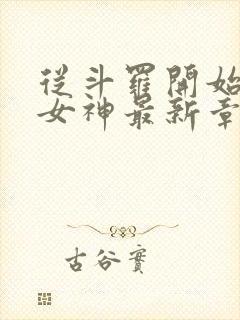 從斗羅開始
女神最新章
古谷實